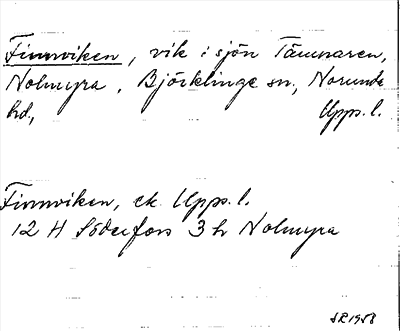 Finnviken, vik i sjön Tämnaren,
Nolmyra, Björklinge sn, Norunda
hd, Upps. l.
Finnviken, ek. Upps. l.
12 H Söderfors 3 h Nolmyra
SR 1958